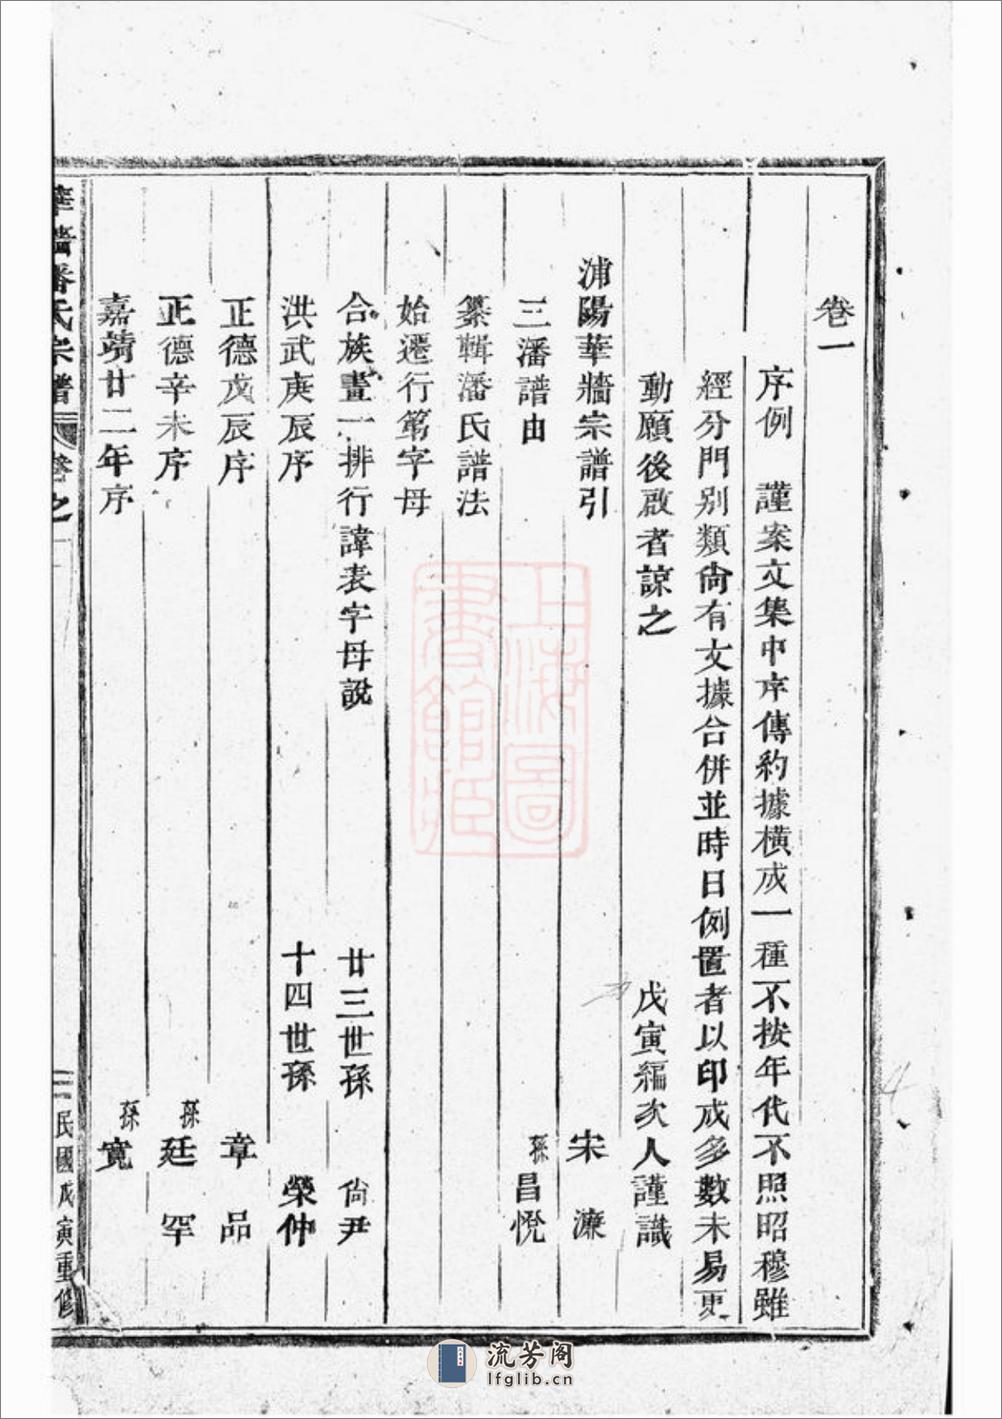 卷一
序例 謹案文集中序傳約據橫成一種不按年代不照昭穆雖
經分門別類尙有文據合併並時日例置者以印成多數未易更
動願後啟者諒之 戊寅編次人謹識
浦陽華牆宗譜引 宋濂
三潘譜由 孫昌悅
纂輯潘氏譜法
始遷行第字母
合族畫一排行諱表字母說 廿三世孫 尙尹
洪武庚辰序 十四世孫 榮仲
正德戊辰序 章品
正德辛未序 孫廷罕
嘉靖廿二年序 孫寬
華牆潘氏宗譜 卷之一 一 民國戊寅重修
上海圖書館藏
流芳阁
lfglib.cn